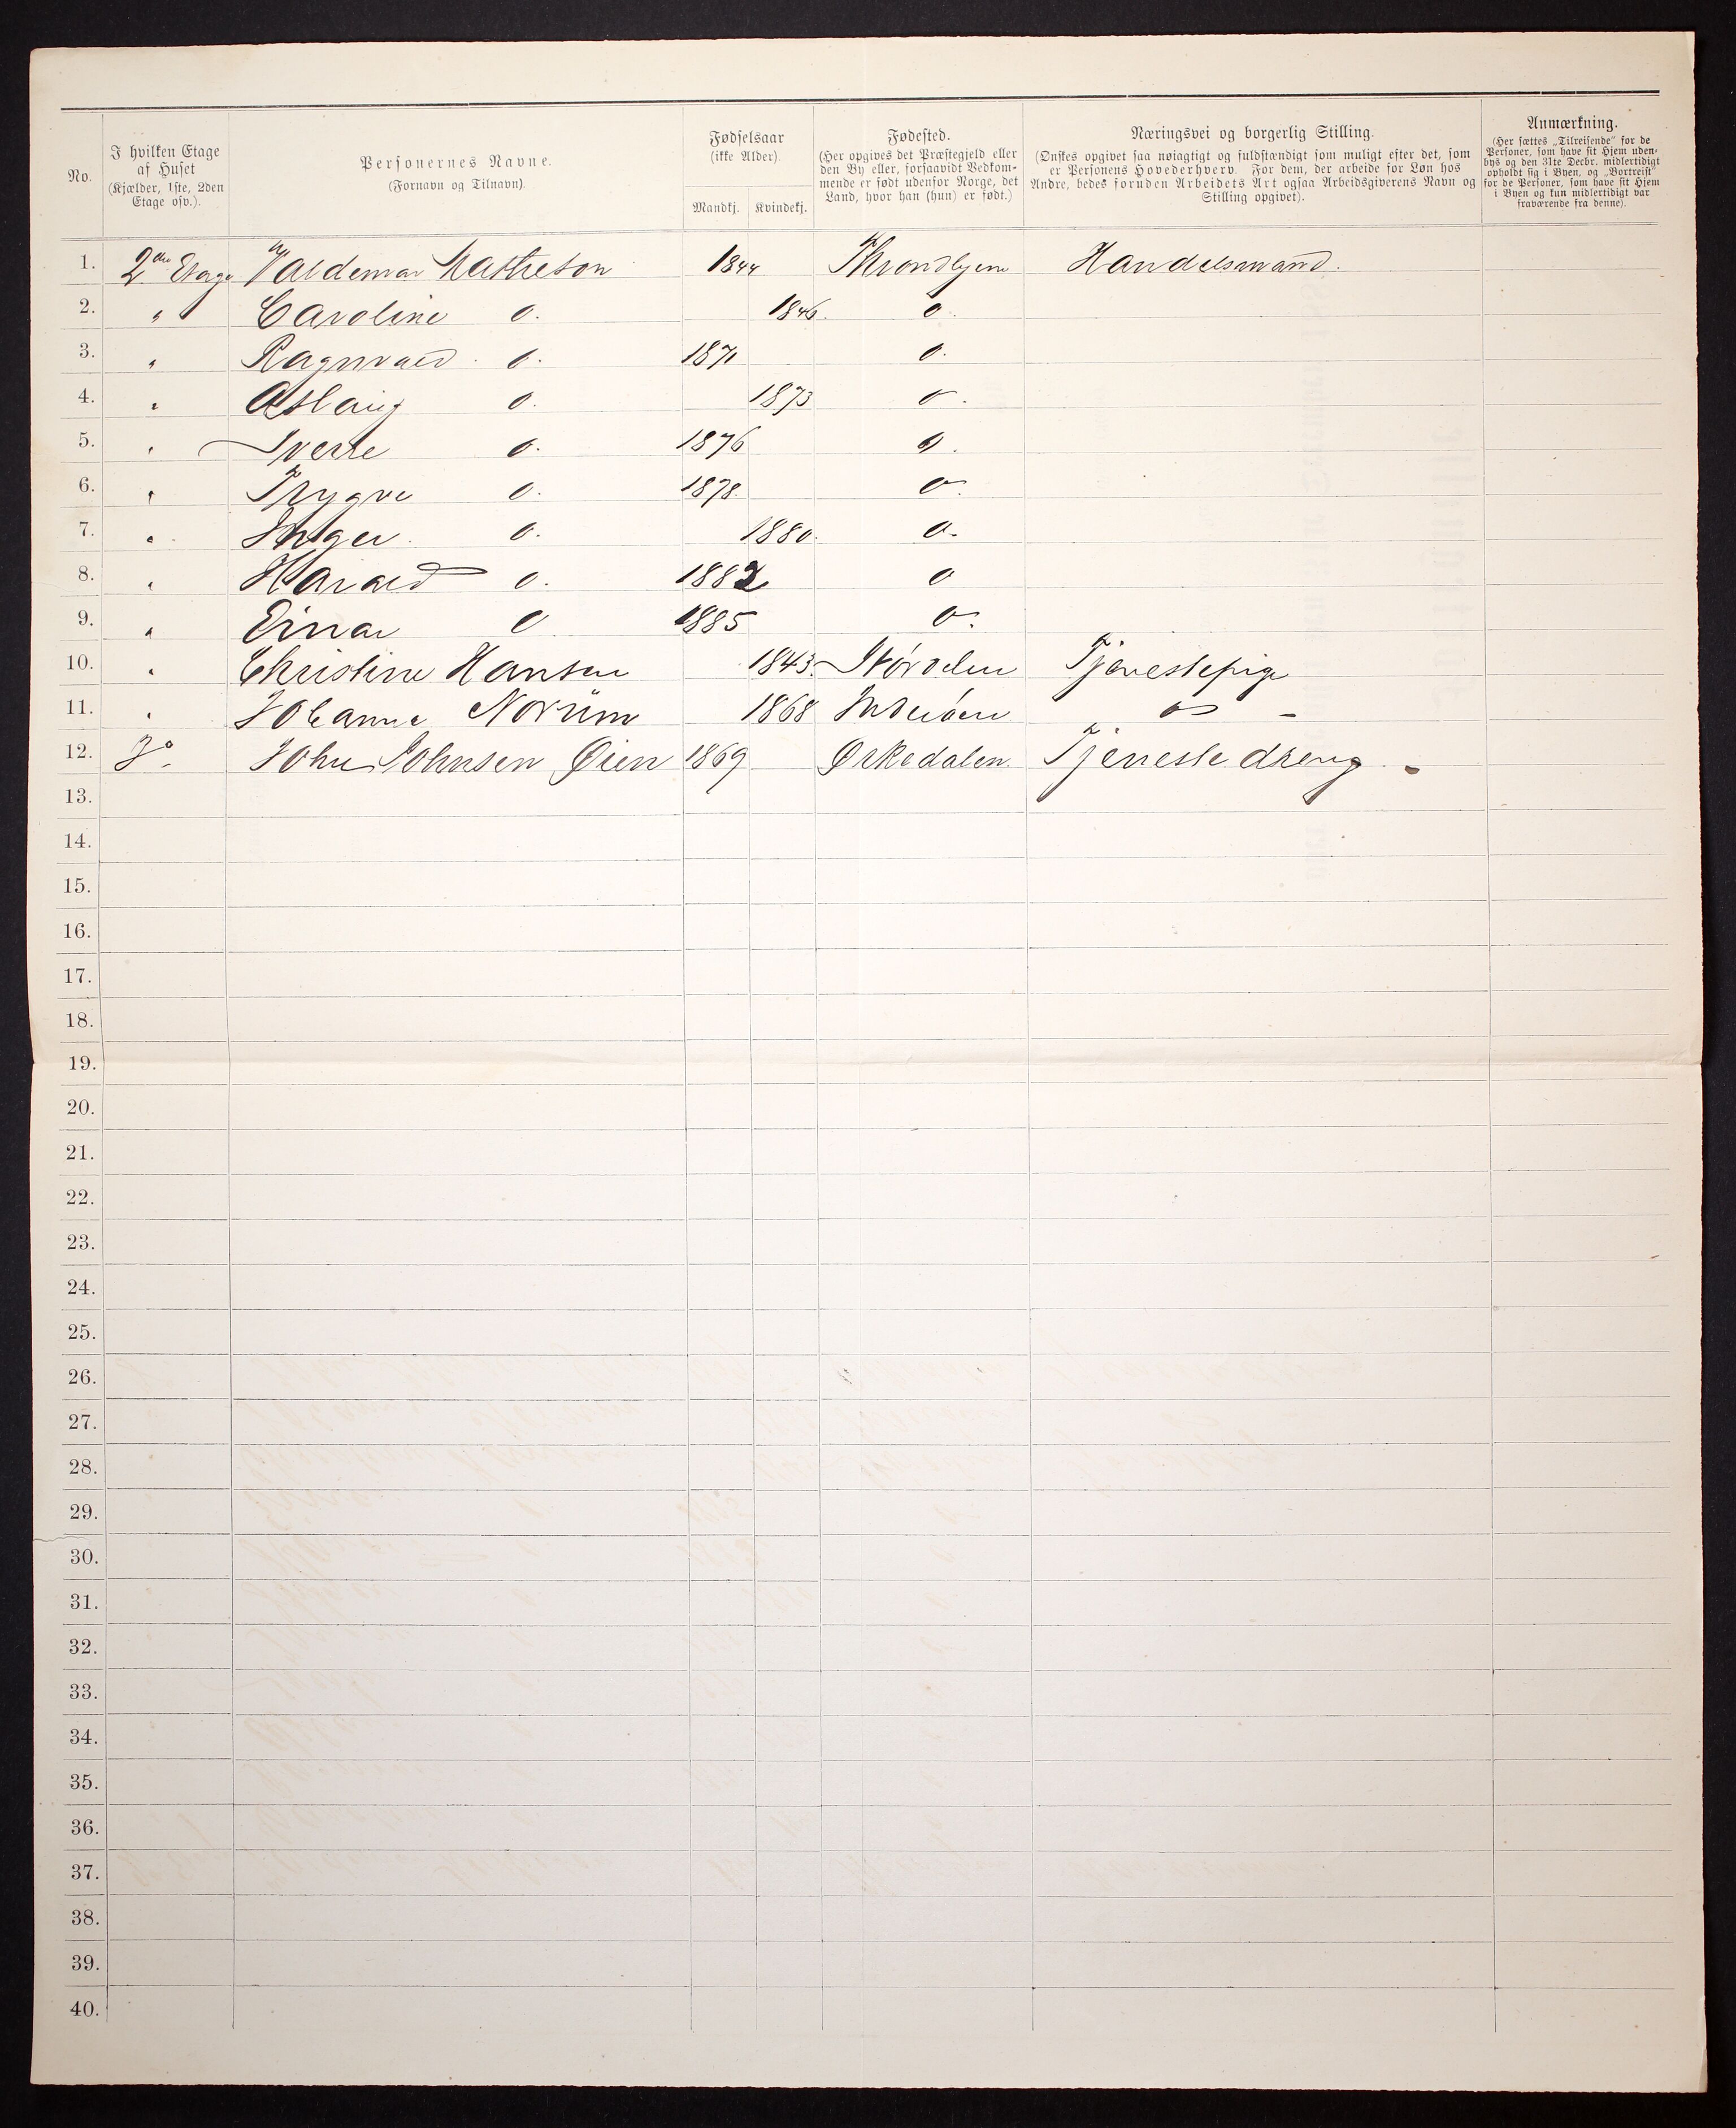 No.
I hvilken Etage
af Huset
(Kjælder, 1ste, 2den
Etage osv.).
Personernes Navne.
(Fornavn og Tilnavn).
Fødselsaar
(ikke Alder).
Mandkj. Kvindekj.
Fødested.
(Her opgives det Præstegjeld eller
den By eller, forsaavidt Vedkom-
mende er født udenfor Norge, det
Land, hvor han (hun) er født.)
Næringsvei og borgerlig Stilling.
(Ønskes opgivet saa nøiagtigt og fuldstændigt som muligt efter det, som
er Personens Hovederhverv. For dem, der arbeide for Løn hos
Andre, bedes foruden Arbeidets Art ogsaa Arbeidsgiverens Navn og
Stilling opgivet).
Anmærkning.
(Her sættes „Tilreisende“ for de
Personer, som have sit Hjem uden-
bys og den 31te Decbr. midlertidigt
opholdt sig i Byen, og „Bortreist“
for de Personer, som have sit Hjem
i Byen og kun midlertidigt var
fraværende fra denne).
1. 2den Etage Valdemar 1844 Throndhjem Handelsmand.
2. " Caroline o. 1846. o.
3. " Ragnvald o. 1871 o.
4. " Aslaug o. 1873 o.
5. " Sverre o. 1876 o.
6. " Trygve o. 1878. o.
7. " Inger o. 1880. o.
8. " Harald o. 1882 o
9. " Einar o 1885 o.
10. " Christine Hansen 1843. Størdalen Tjenestepige
11. " Johanna Norum 1868 Inderøen o –
12. John Johnsen Øien 1869 Ørkedalen. Tjenestedreng. -
13.
14.
15.
16.
17.
18.
19.
20.
21.
22.
23.
24.
25.
26.
27.
28.
29.
30.
31.
32.
33.
34.
35.
36.
37.
38.
39.
40.